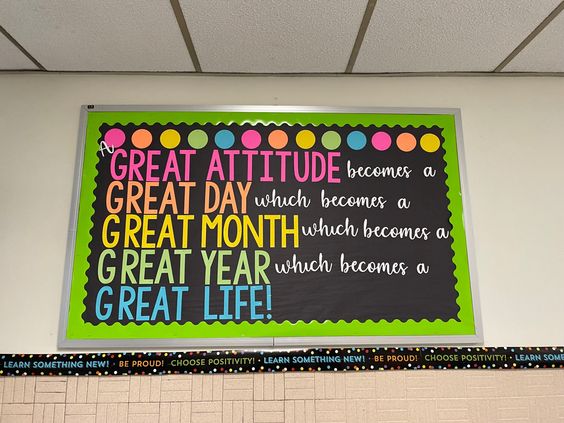 A
GREAT ATTITUDE becomes a
GREAT DAY which becomes a
GREAT MONTH which becomes a
GREAT YEAR which becomes a
GREAT LIFE!
LEARN SOMETHING NEW! · BE PROUD! · CHOOSE POSITIVITY! · LEARN SOMETHING NEW! · BE PROUD! · CHOOSE POSITIVITY! · LEARN SOME